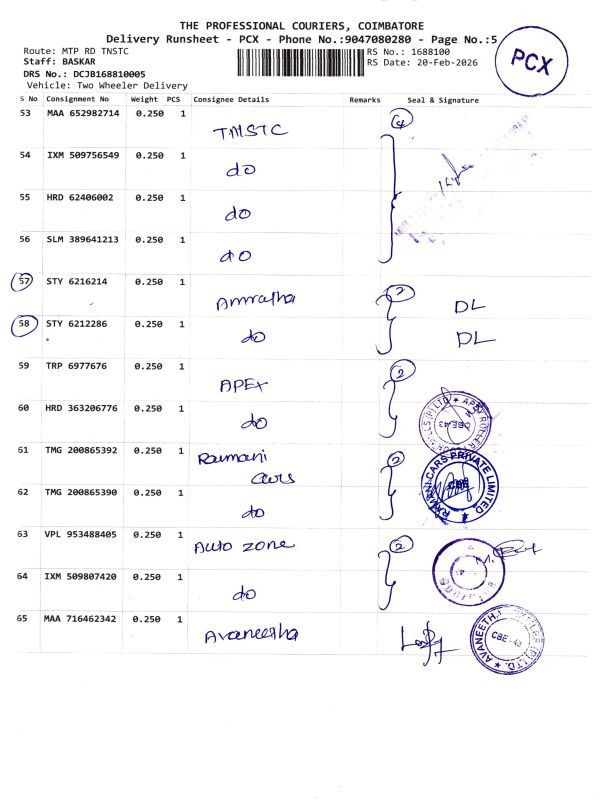 THE PROFESSIONAL COURIERS, COIMBATORE
Delivery Runsheet - PCX - Phone No.:9047080280 - Page No.:5
PCX
Route: MTP RD TNSTC
RS No.: 1688100
Staff: BASKAR
RS Date: 20-Feb-2026
DRS No.: DCJB168810005
Vehicle: Two Wheeler Delivery
S No Consignment No Weight PCS Consignee Details Remarks Seal & Signature
53 MAA 652982714 0.250 1 TNSTC 4
54 IXM 509756549 0.250 1 do
55 HRD 62406002 0.250 1 do
56 SLM 389641213 0.250 1 do
57 STY 6216214 0.250 1 Amratha 2 DL
58 STY 6212286 0.250 1 do DL
59 TRP 6977676 0.250 1 APEX 2
60 HRD 363206776 0.250 1 do
61 TMG 200865392 0.250 1 Ramani Cars 2
RAMANI CARS PRIVATE LIMITED
CBE
62 TMG 200865390 0.250 1 do
63 VPL 953488405 0.250 1 Auto zone 2
64 IXM 509807420 0.250 1 do
65 MAA 716462342 0.250 1 Avaneetha
CBE-43